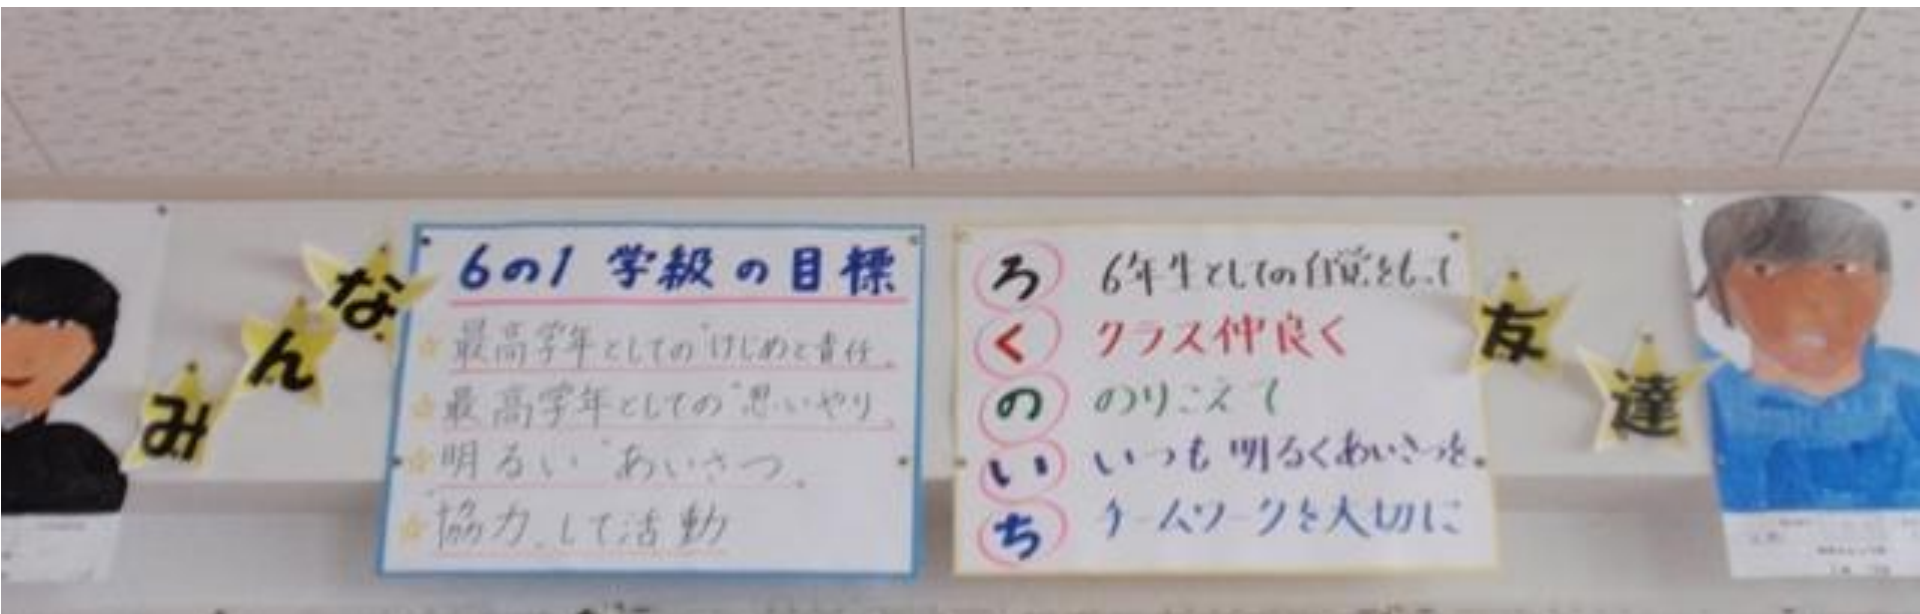 みんな
6の1 学級の目標
最高学年としての"けじめと責任"
最高学年としての"思いやり"
明るい"あいさつ"
"協力"して活動
ろ 6年生としての自覚をもって
く クラス仲良く
の のりこえて
い いつも明るくあいさつを
ち チームワークを大切に
友達